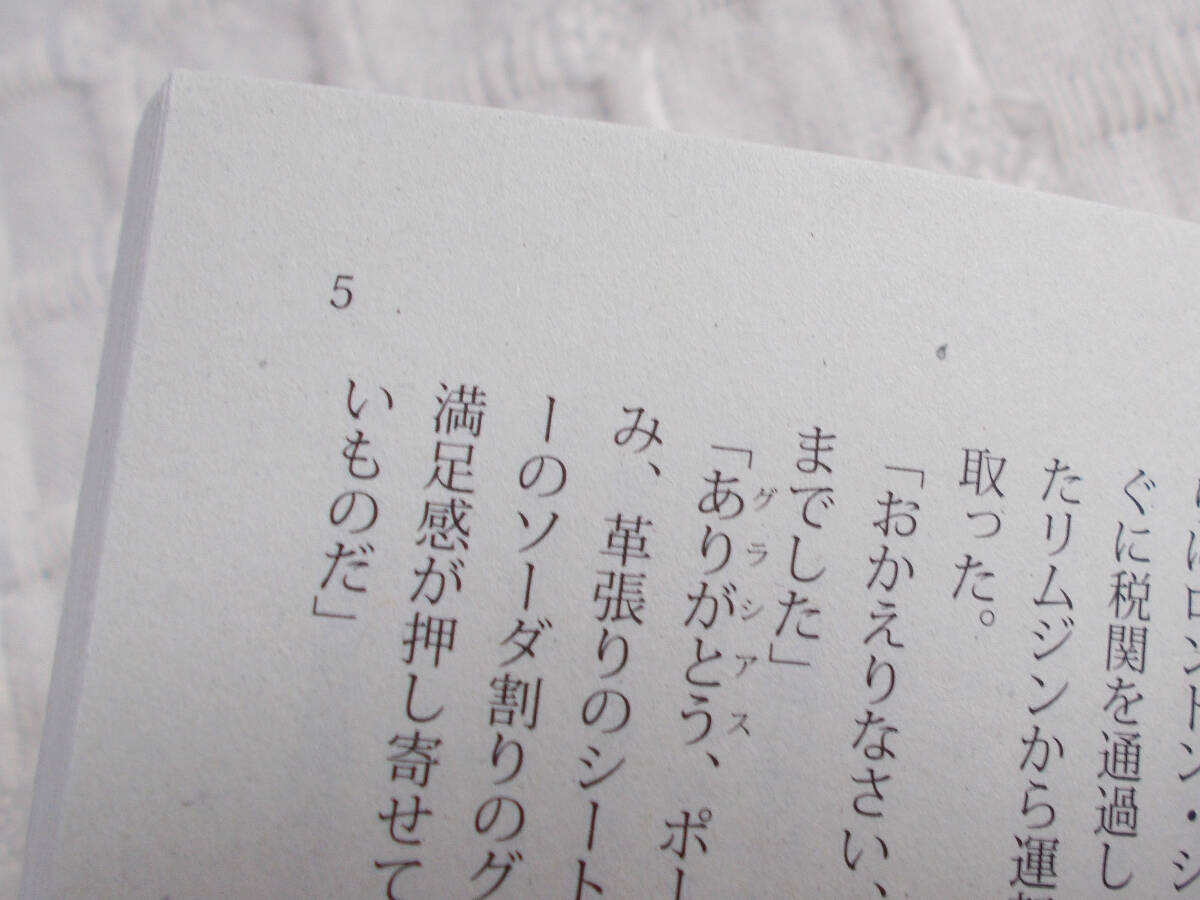 にロンドン・シ
ぐに税関を通過し
たリムジンから運転
取った。
「おかえりなさい、
までした」
「ありがとう、ポー
グラシアス
み、革張りのシート
ーのソーダ割りのグ
満足感が押し寄せて
いものだ」
5